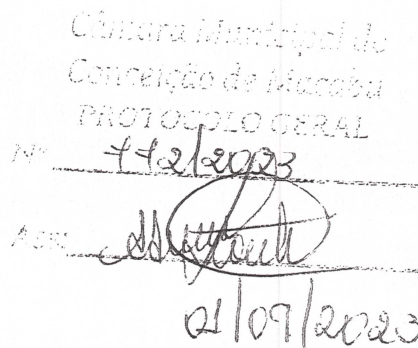 Câmara Municipal de
Conceição de Macabu
PROTOCOLO GERAL
Nº 772/2023
ASS.
01/09/2023